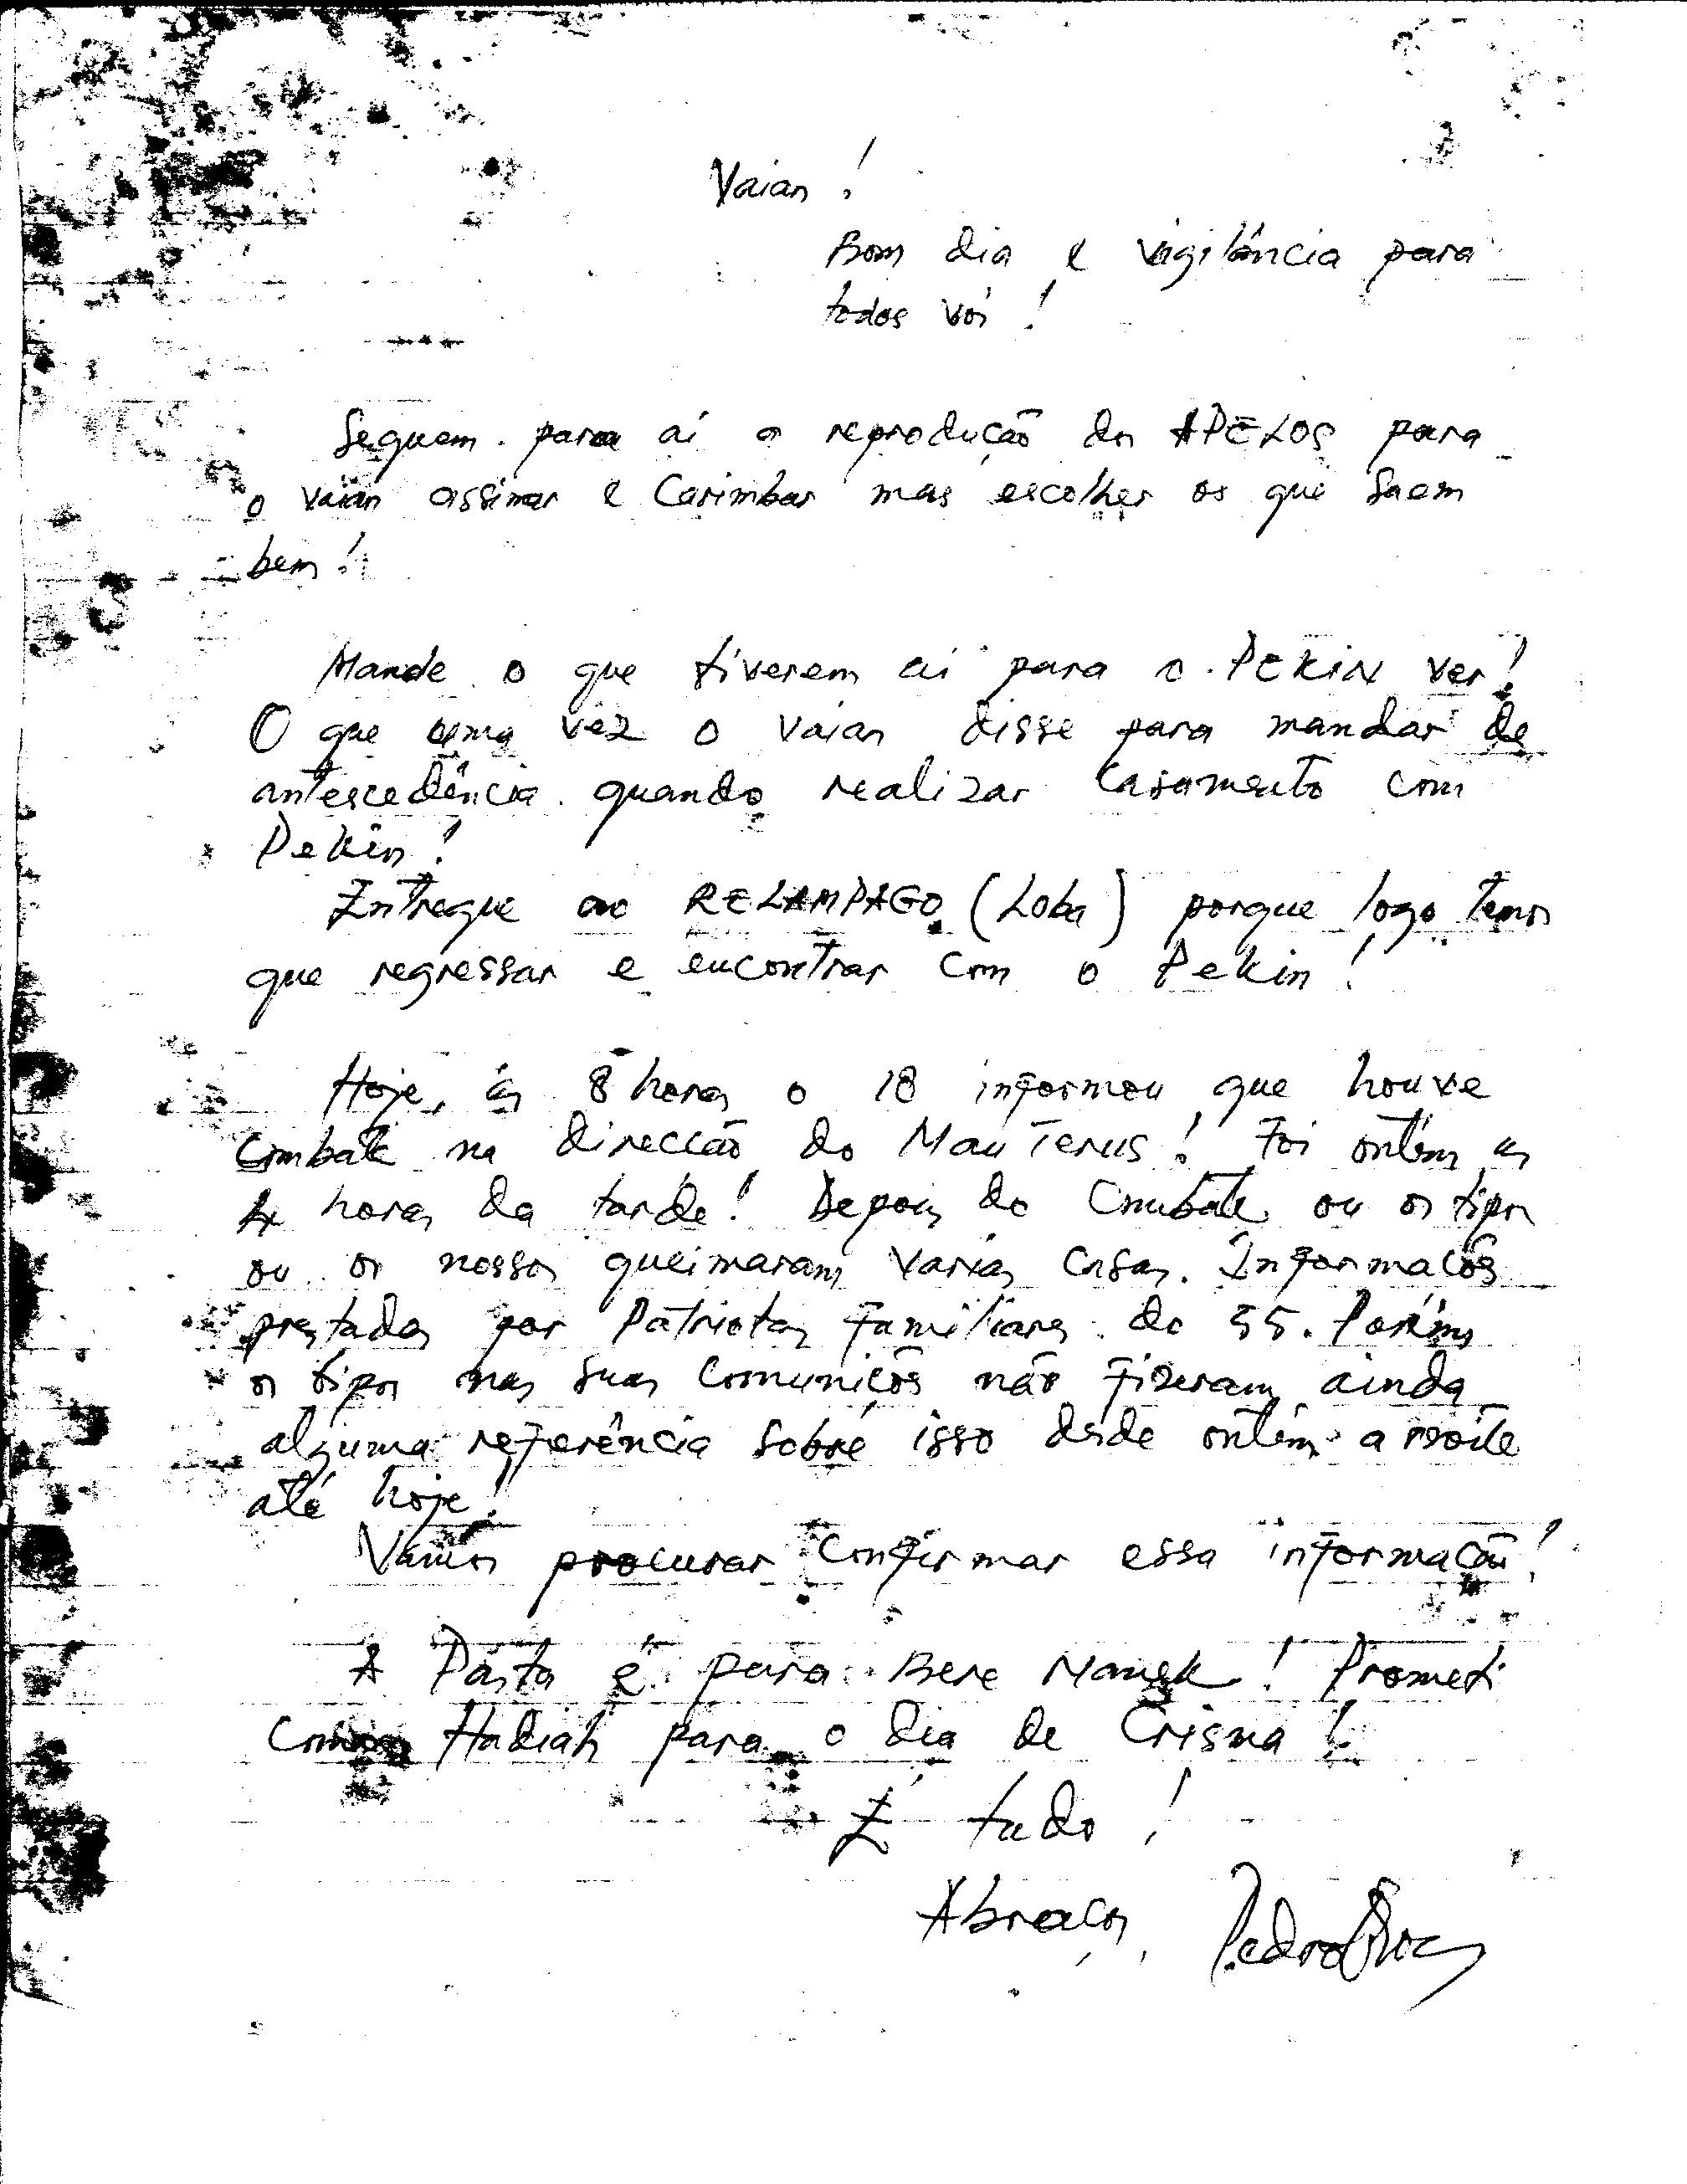 Vaian !
Bom dia e vigilância para
todos vós !
Seguem para aí a reprodução dos APELOS para
o Vaian assinar e Carimbar mas escolher os que saem
bem !
Mande o que tiverem aí para o PEKIN ver !
O que uma vez o Vaian disse para mandar de
antescedência quando realizar Casamento com
Pekin !
Entregue ao RELAMPAGO (Loba) porque logo temos
que regressar e encontrar com o Pekin !
Hoje, ás 8 horas o 18 informou que houve
Combate na direccão do Mau Terus ! Foi ontém as
4 horas da tarde ! Depois do Combate ou os tipos
ou os nossos queimaram varias Casas. Informacõs
prestadas por Patriotas familiares do 55. Porém
os tipos nas suas Comunicõs não fizeram ainda
alguma referência sobre isso desde ontém a noite
até hoje !
Vamos procurar Confirmar essa informacão !
A Pasta é para Bere Manek ! Prometi
Como Hadiah para o dia de Crisma !
É tudo !
Abracos,